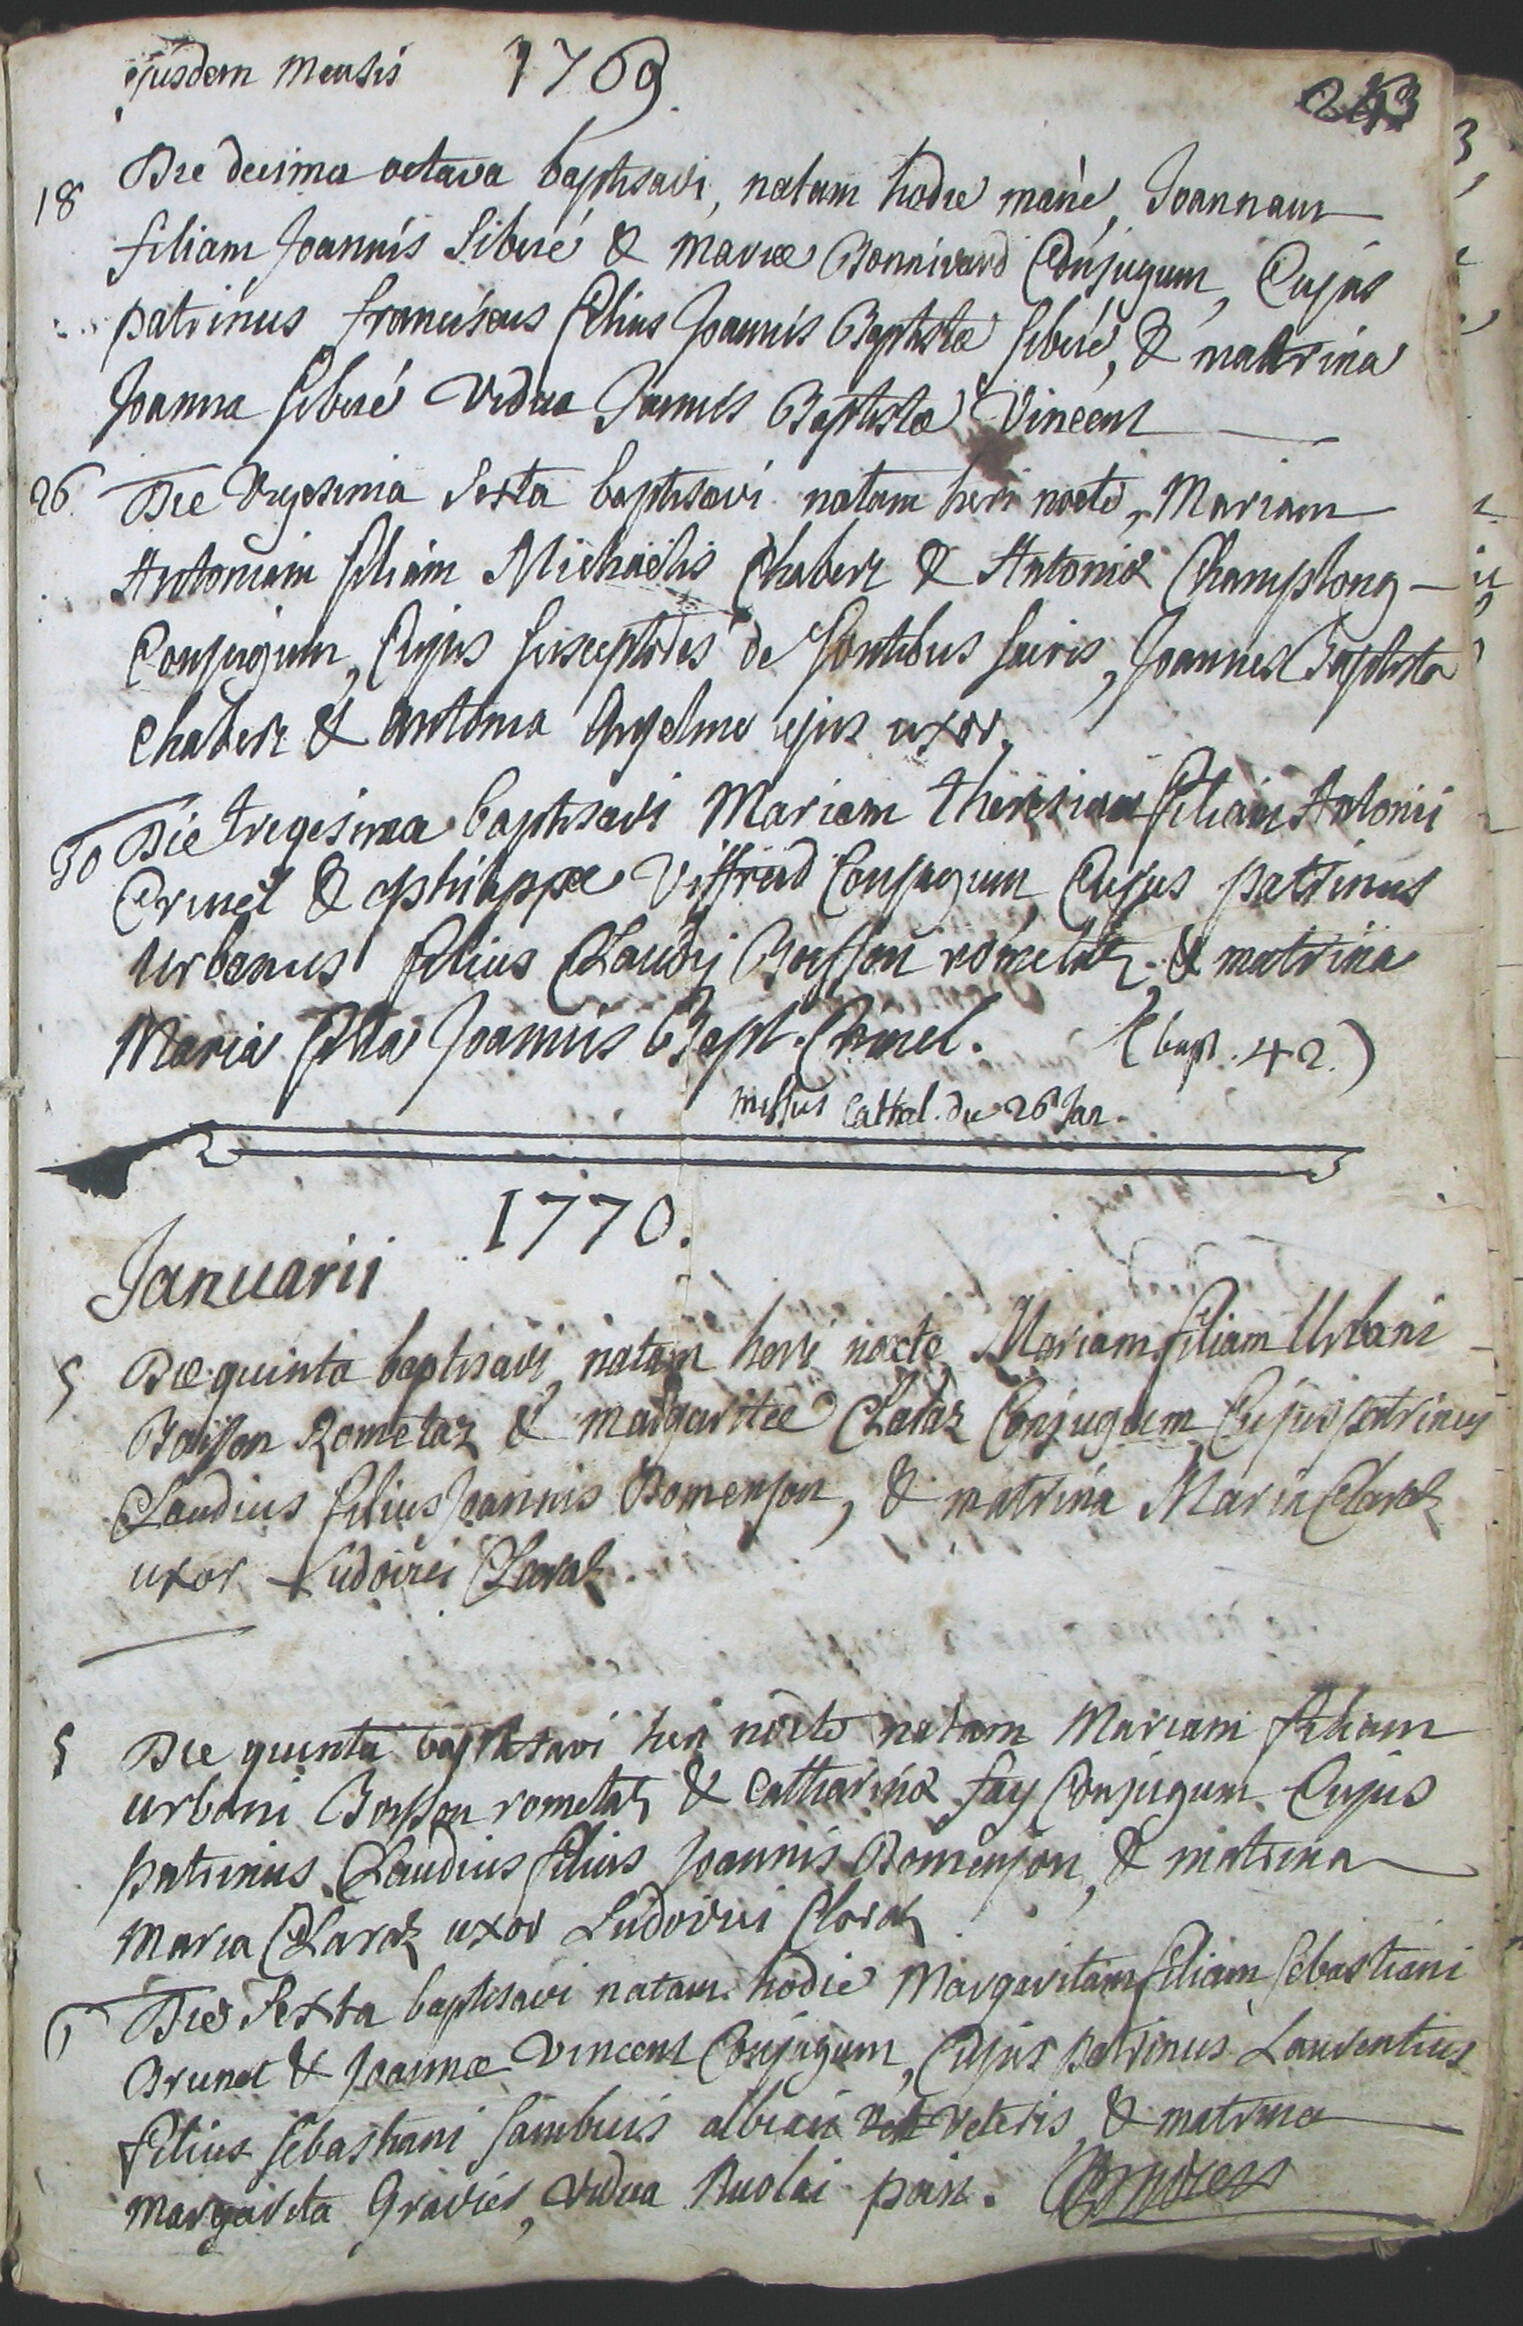 ejusdem mensis 1769. 243
18 Die decima octava baptisavi, natam hodie manè, Joannam
filiam Joannis Sibué & mariæ Bonnivard Conjugum, Cujus
patrinus franciscus filius Joannis Baptistæ Sibué, & matrina
Joanna Sibué vidua Joannis Baptistæ Vincent
26. Die vigesima sexta baptisavi natam heri nocte, Mariam
Antoniam filiam Michaëlis Chaberz & Antoniæ Champlong
Conjugum, Cujus susceptores de fontibus sacris, Joannes Baptista
Chaberz & antonia Anselme ejus uxor.
30 Die trigesima baptisavi Mariam theresiam filiam Antonii
Brunet & philippæ Viffred Conjugum, Cujus patrinus
Urbanus filius Claudij Bosson rometaz, & matrina
Maria filia Joannis Bapt. Brunet. (bapt. 42.)
missus Cathal. die 26 Jan.
1770.
Januarii
5 Die quinta baptisavi, natam heri nocte, Mariam filiam Urbani
Bosson Rometaz & margaritæ Claraz Conjugum Cujus patrinus
Claudius filius Joannis Bomenjon, & matrina Maria Claraz
uxor Ludovici Claraz
5 Die quinta baptisavi heri nocte natam Mariam filiam
urbani Bosson rometaz & Catharinæ fay Conjugum Cujus
patrinus Claudius filius Joannis Bomenjon, & matrina
Maria Claraz uxor Ludovici Claraz
6 Die Sexta baptisavi natam hodie Margaritam filiam Sebastiani
Brunet & Joannæ Vincent Conjugum, Cujus patrinus Laurentius
filius Sebastiani Sambuis albiaci veteris, & matrina
Margarita Gravier, vidua Nicolai